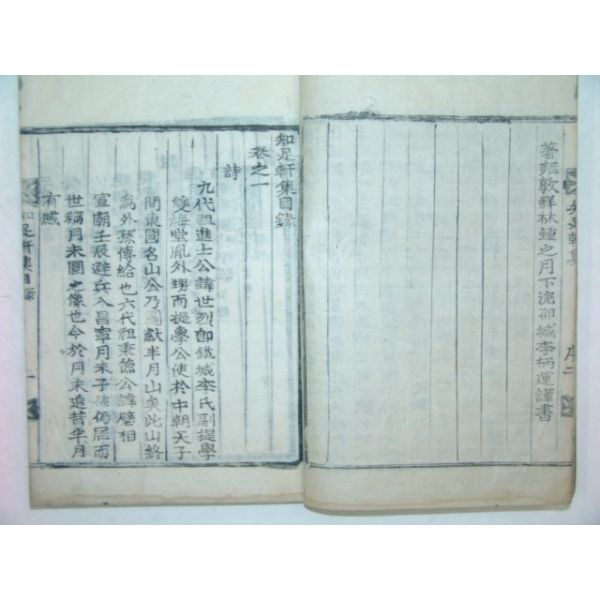 著雍敦牂林鍾之月下浣卽城李柄運謹書
知足軒集 序 二
知足軒集目錄
卷之一
詩
九代祖進士公諱世烈卽鐵城李氏副提學
雙海堂胤外甥而提學公使於中朝天子
問東國名山公乃圖獻半月山矣此山終
爲外孫傳給也六代祖秉節公諱璧相
宣廟壬辰避兵入昌寧月末子孫仍居而
世稱月未圖之像也今於月未追昔半月
有感
知足軒集目錄 一